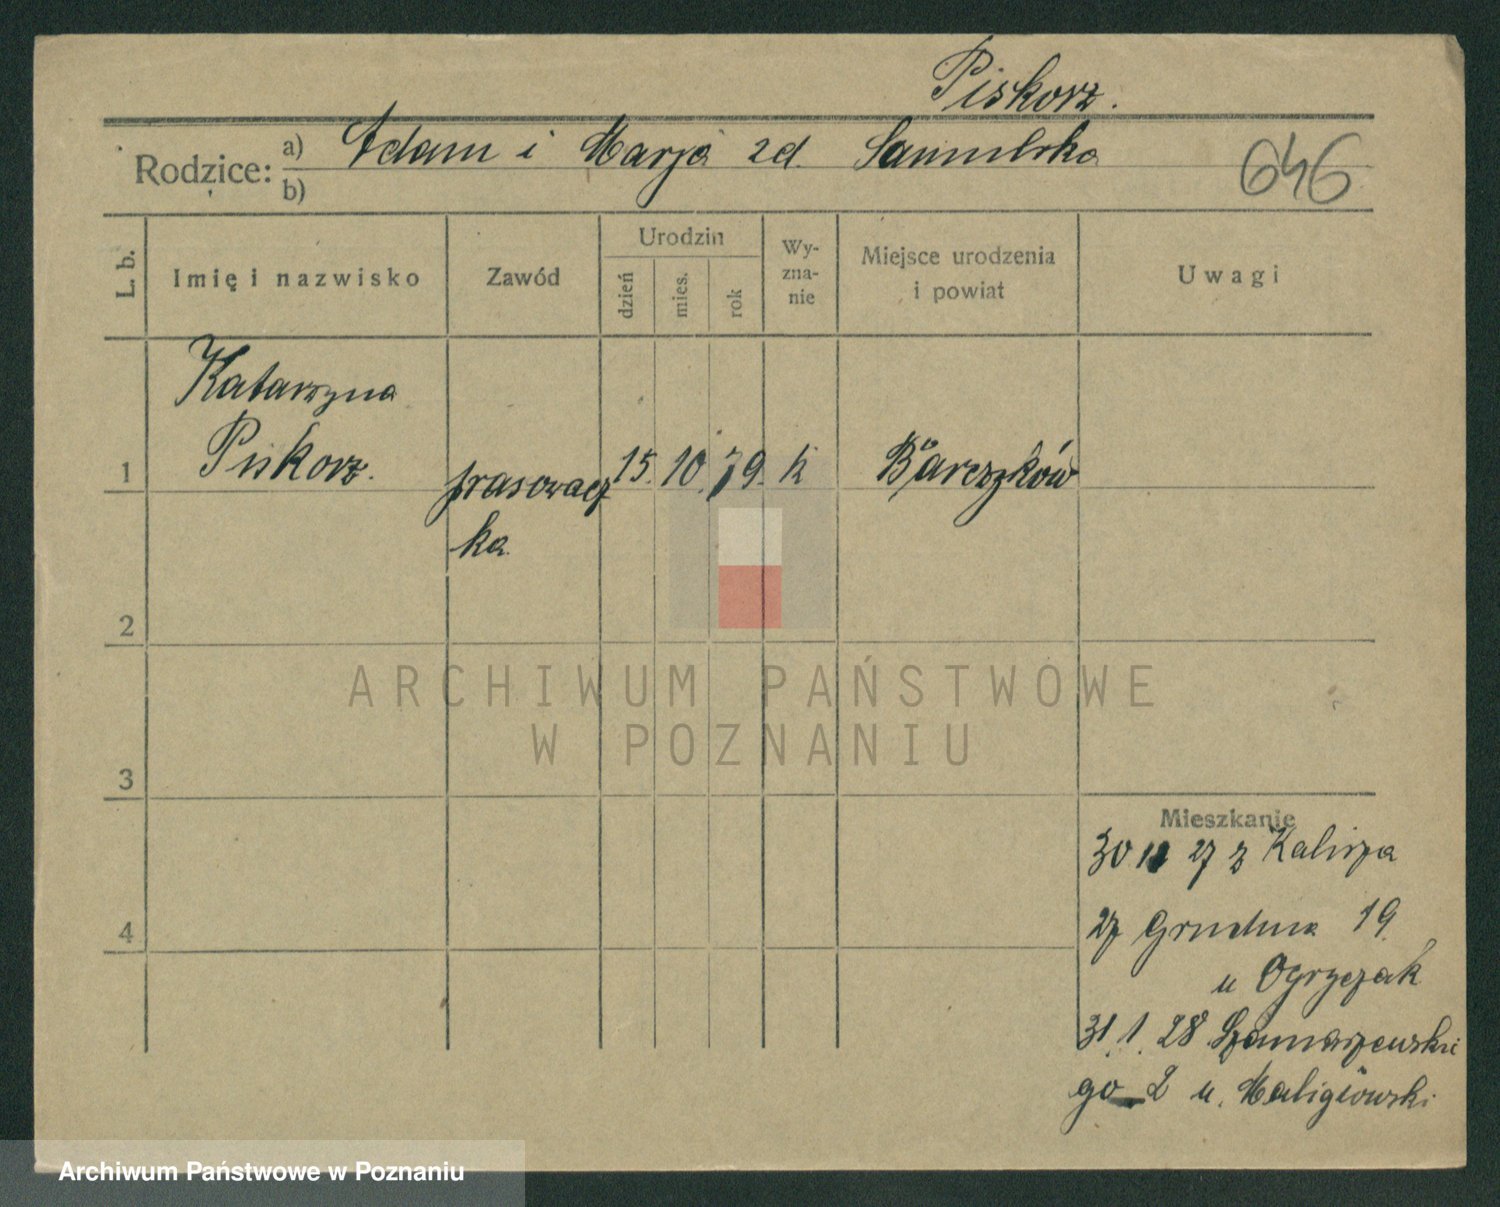 Piskorz.
Rodzice: a) Adam i Marja zd.
b)
646
L. b.
Imię i nazwisko
Zawód
Urodzin
dzień
mies.
rok
Wy-
zna-
nie
Miejsce urodzenia
i powiat
Uwagi
Katarzyna
1 Piskorz. prasowacz 15. 10. 79. k Barczków
ka
2
3
4
ARCHIWUM PAŃSTWOWE
W POZNANIU
Mieszkanie
30 27 z Kalisza
27 Grudnia 19
u Ogryczak
31.1.28 Szamarzewskie
go 2 u.
Archiwum Państwowe w Poznaniu